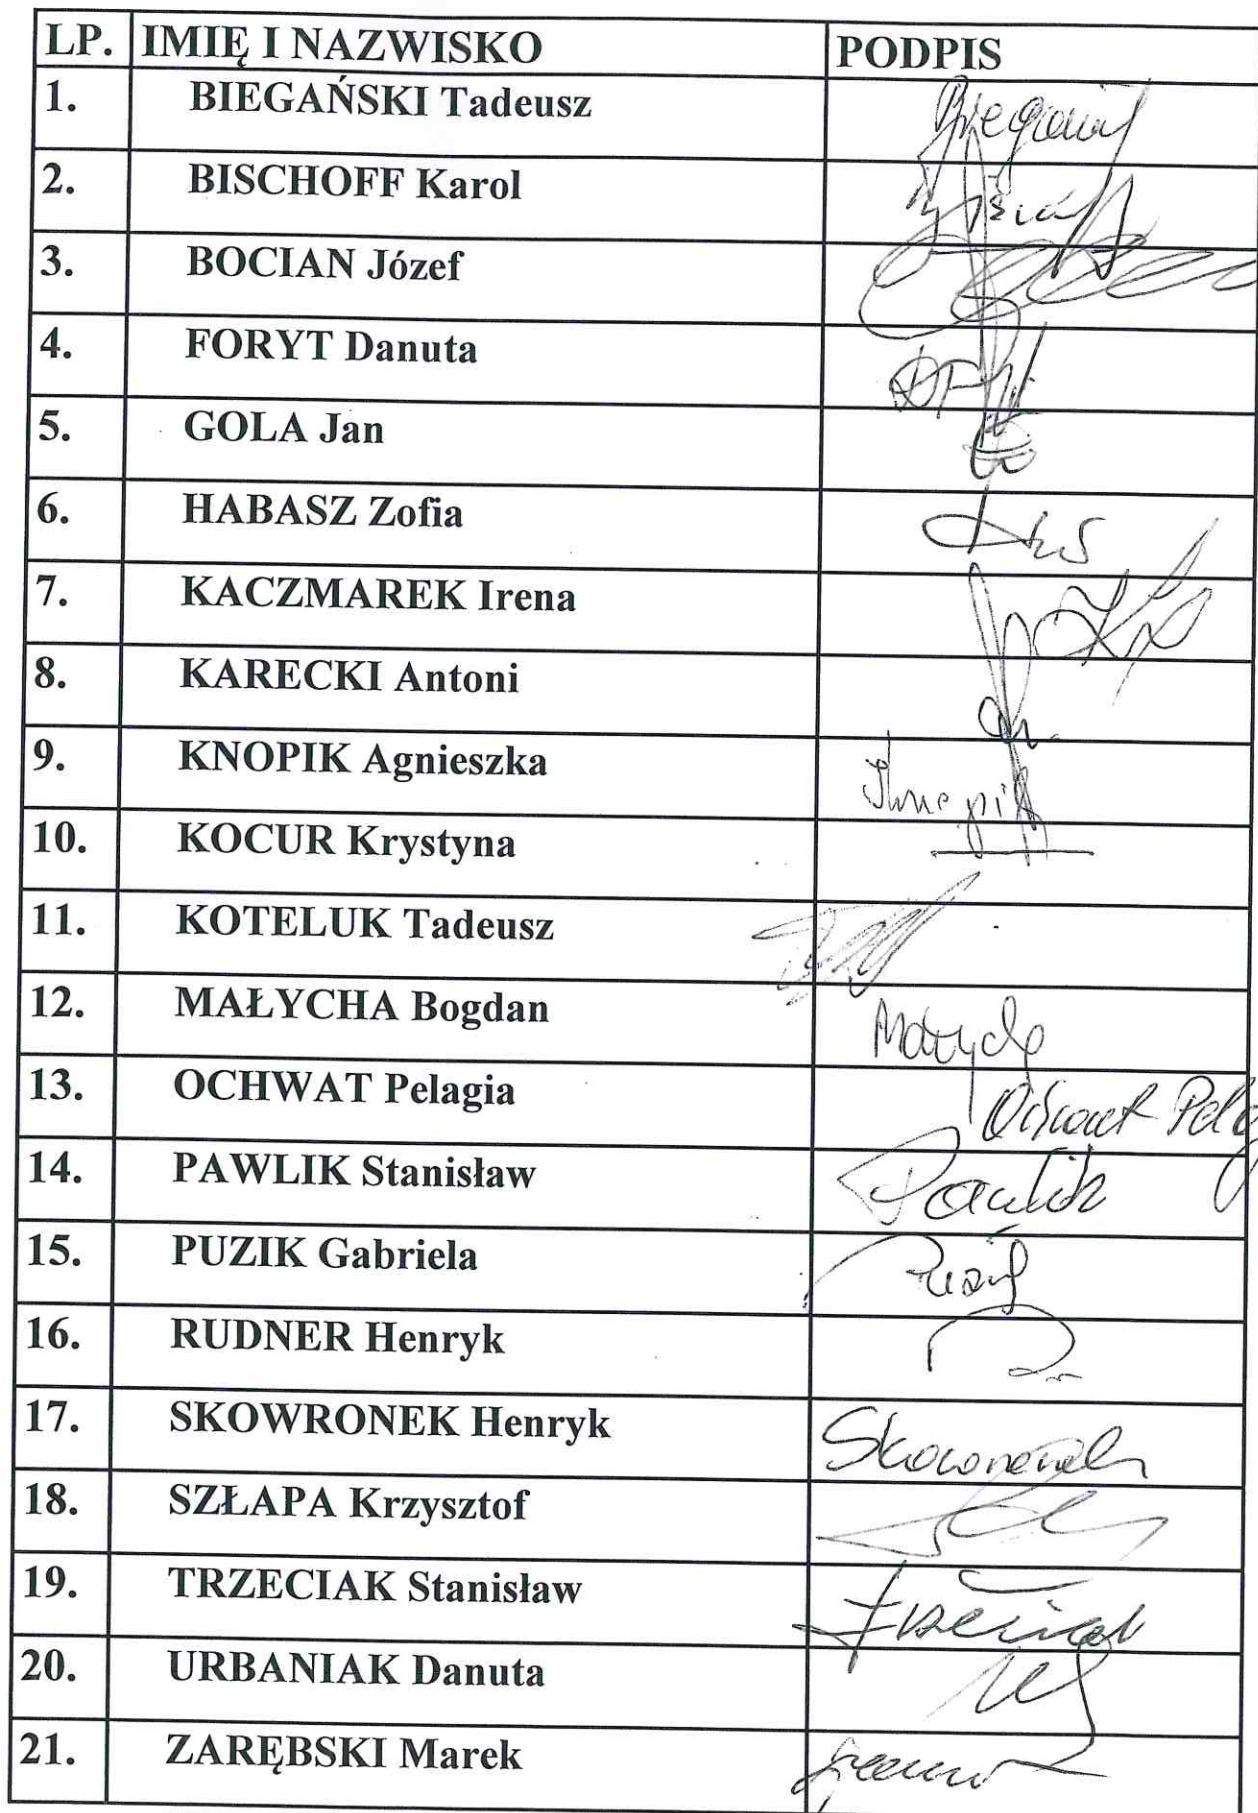 LP. IMIĘ I NAZWISKO PODPIS
1. BIEGAŃSKI Tadeusz
2. BISCHOFF Karol
3. BOCIAN Józef
4. FORYT Danuta
5. GOLA Jan
6. HABASZ Zofia
7. KACZMAREK Irena
8. KARECKI Antoni
9. KNOPIK Agnieszka
10. KOCUR Krystyna
11. KOTELUK Tadeusz
12. MAŁYCHA Bogdan
13. OCHWAT Pelagia
14. PAWLIK Stanisław Pawlik
15. PUZIK Gabriela
16. RUDNER Henryk
17. SKOWRONEK Henryk Skowronek
18. SZŁAPA Krzysztof
19. TRZECIAK Stanisław Trzeciak
20. URBANIAK Danuta
21. ZARĘBSKI Marek